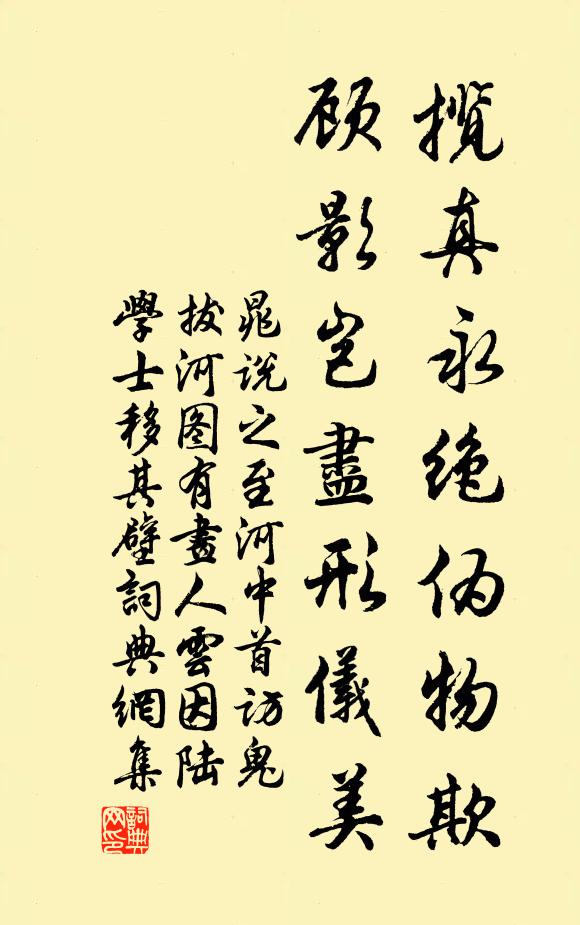 揽真永绝伪物欺
顾影岂盡形儀美
晁说之至河中首访鬼
拔河图有畫人雲因陆
學士移其壁詞典網集
詞典網印